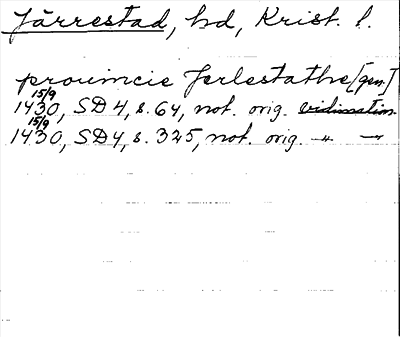 Järrestad, hd, Krist. l.
prouincie Jerlestathe [gen.]
15/9
1430, SD4, s. 64, not. orig. vidimation.
15/9
1430, SD4, s. 325, not. orig. –"– –